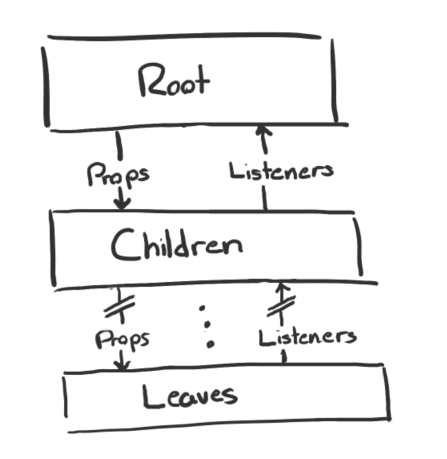 Root
Props Listeners
Children
Props Listeners
Leaves